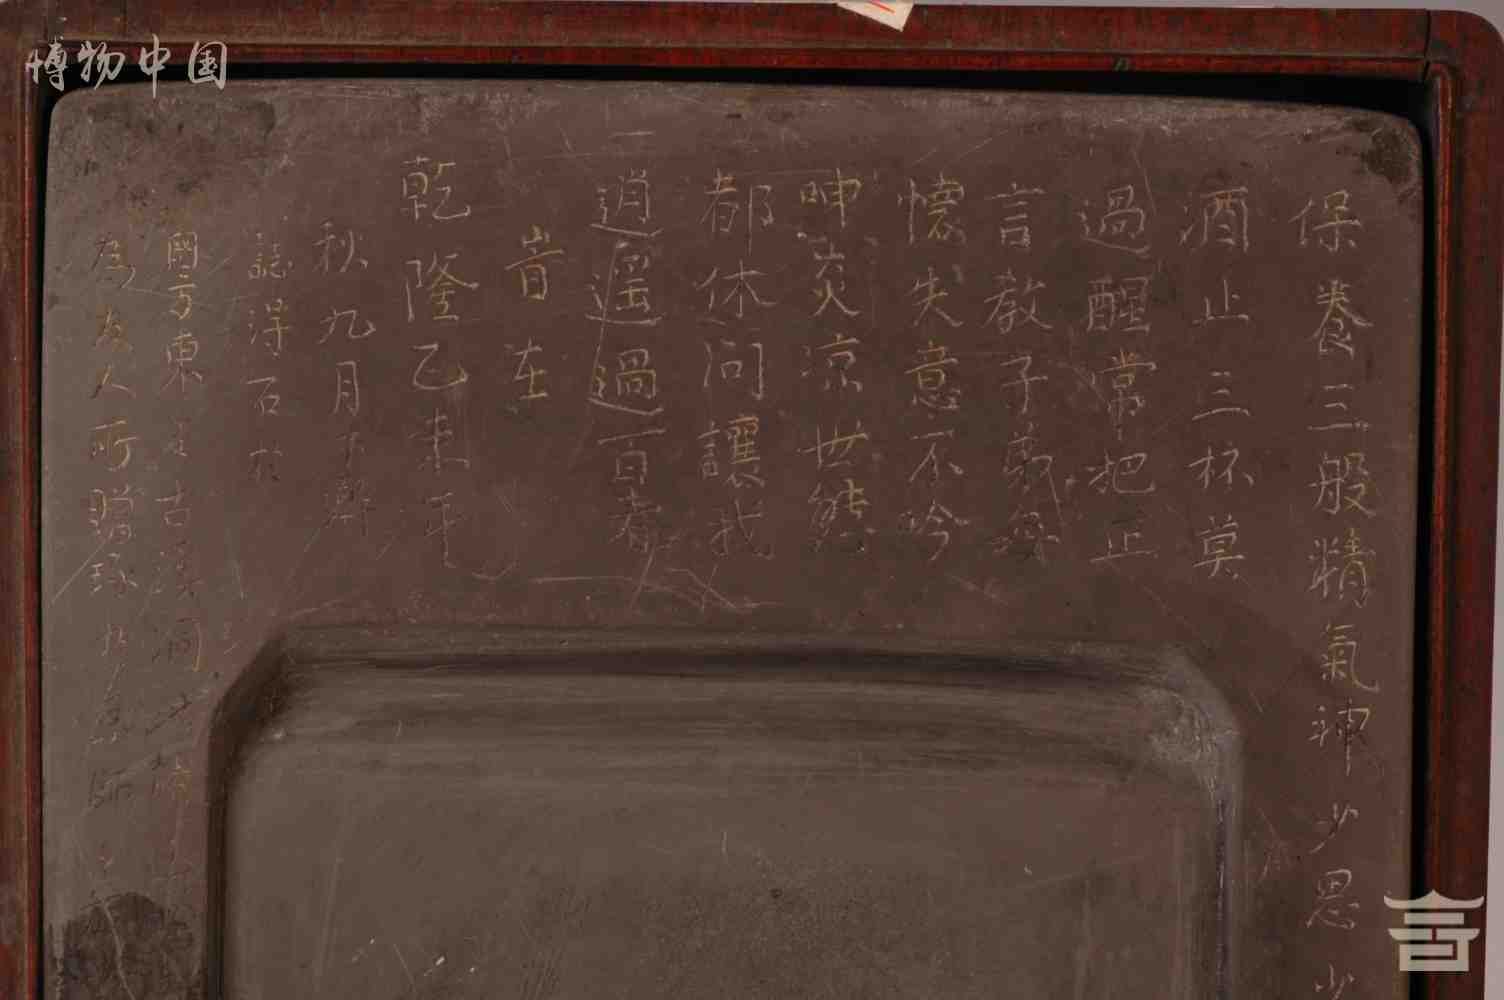 博物中国
保養三般精氣神少思少
酒止三杯莫
過醒常把正
言教子弟每
懷失意不吟
呻炎凉世態
都休问讓我
逍遥過百春
岩在
乾隆乙未年
秋九月下澣
誌得石於
國方東古溪洞
為友人所贈琢